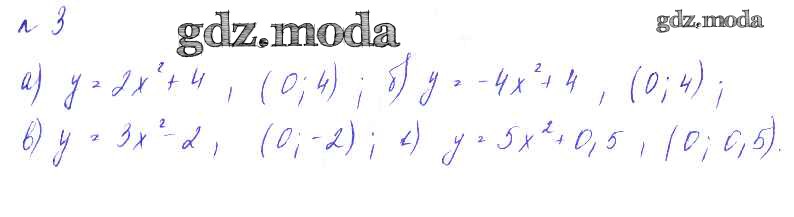 № 3 gdz.moda gdz.moda
а) y = 2x² + 4 , (0; 4) ; б) y = -4x² + 4 , (0; 4) ;
в) y = 3x² - 2 , (0; -2) ; г) y = 5x² + 0,5 , (0; 0,5).